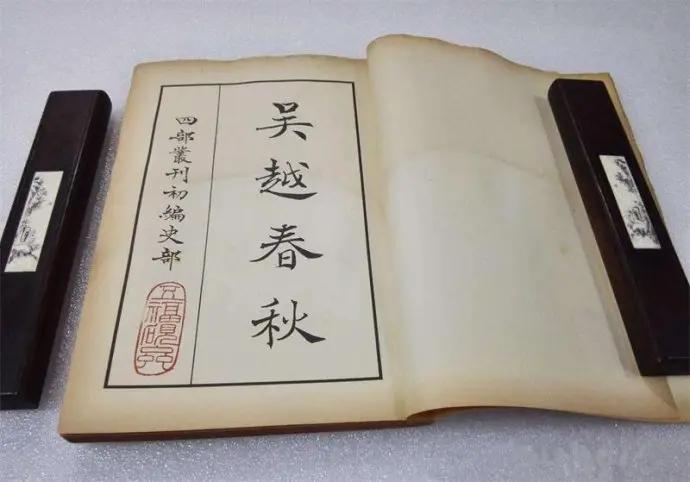 吴越春秋
四部叢刊初編史部